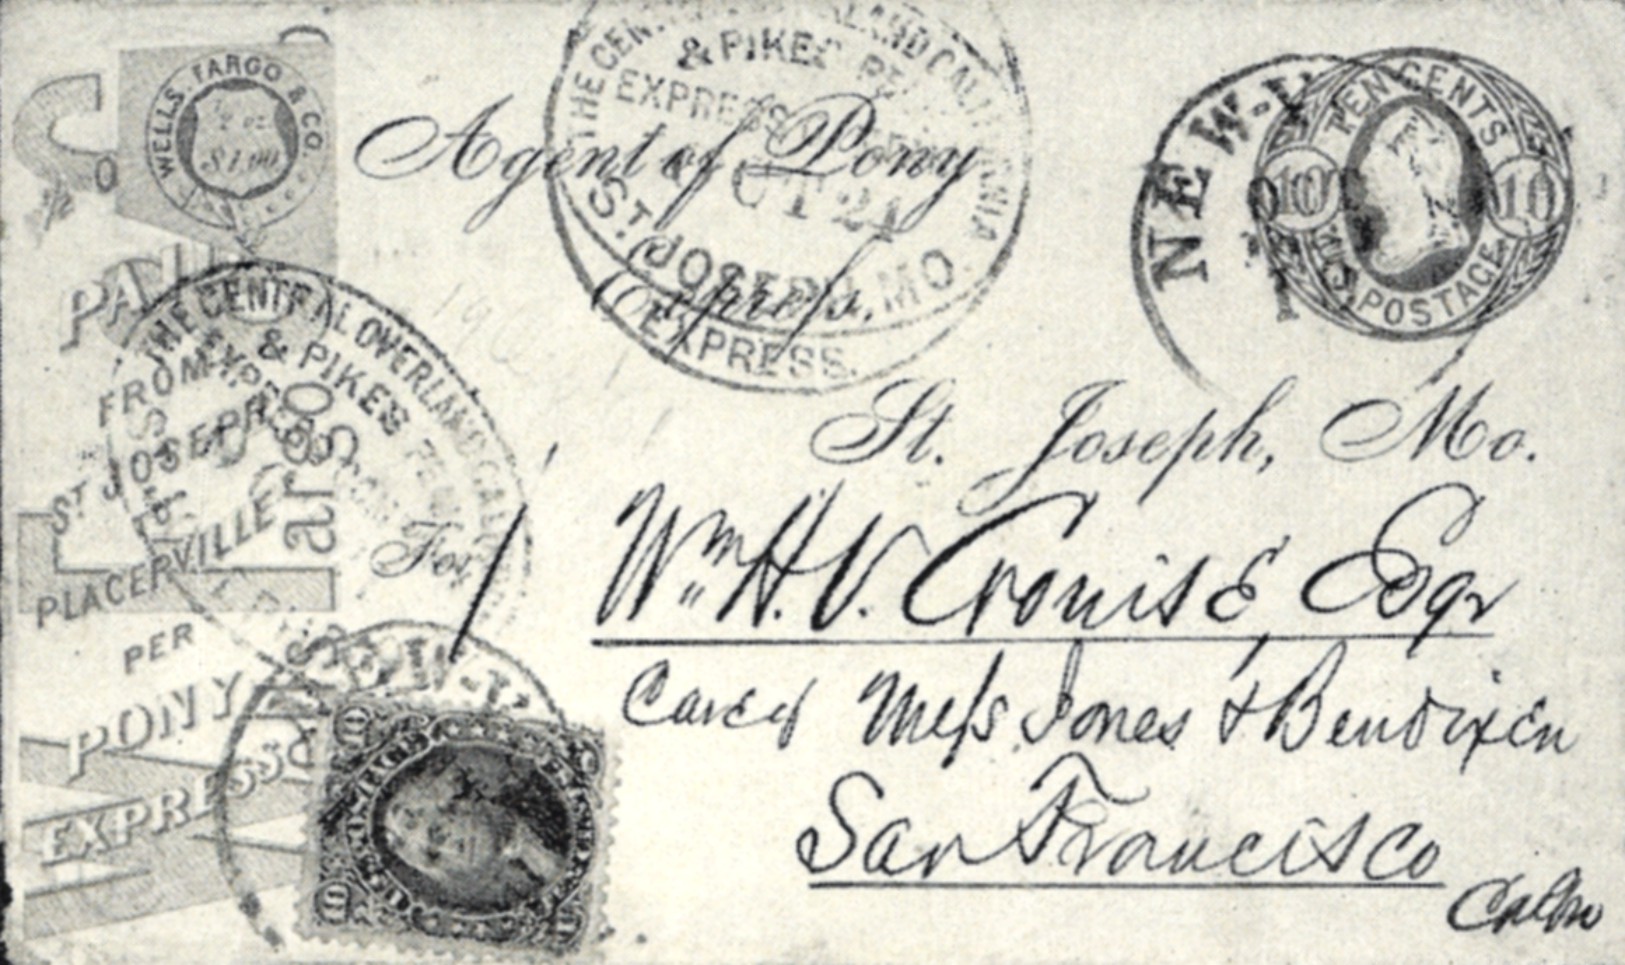 WELLS, FARGO & CO.
½ oz
$1.00
PAID
FROM
ST JOSEPH
PLACERVILLE
PER
PONY
EXPRESS
THE CENTRAL OVERLAND CALIFORNIA
& PIKES PEAK
EXPRESS COMPANY
OCT 21
ST. JOSEPH, MO.
EXPRESS.
NEW-Y
TEN CENTS
10 10
U.S. POSTAGE
Agent of Pony
Express,
St. Joseph, Mo.
THE CENTRAL OVERLAND CALI
& PIKES PEAK
EXPRESS
For
Wm. H. V. Cronise, Esqr
Care of Mess Jones & Bendixen
San Francisco
Cala
NEW-Y
U.S. POSTAGE
10 10